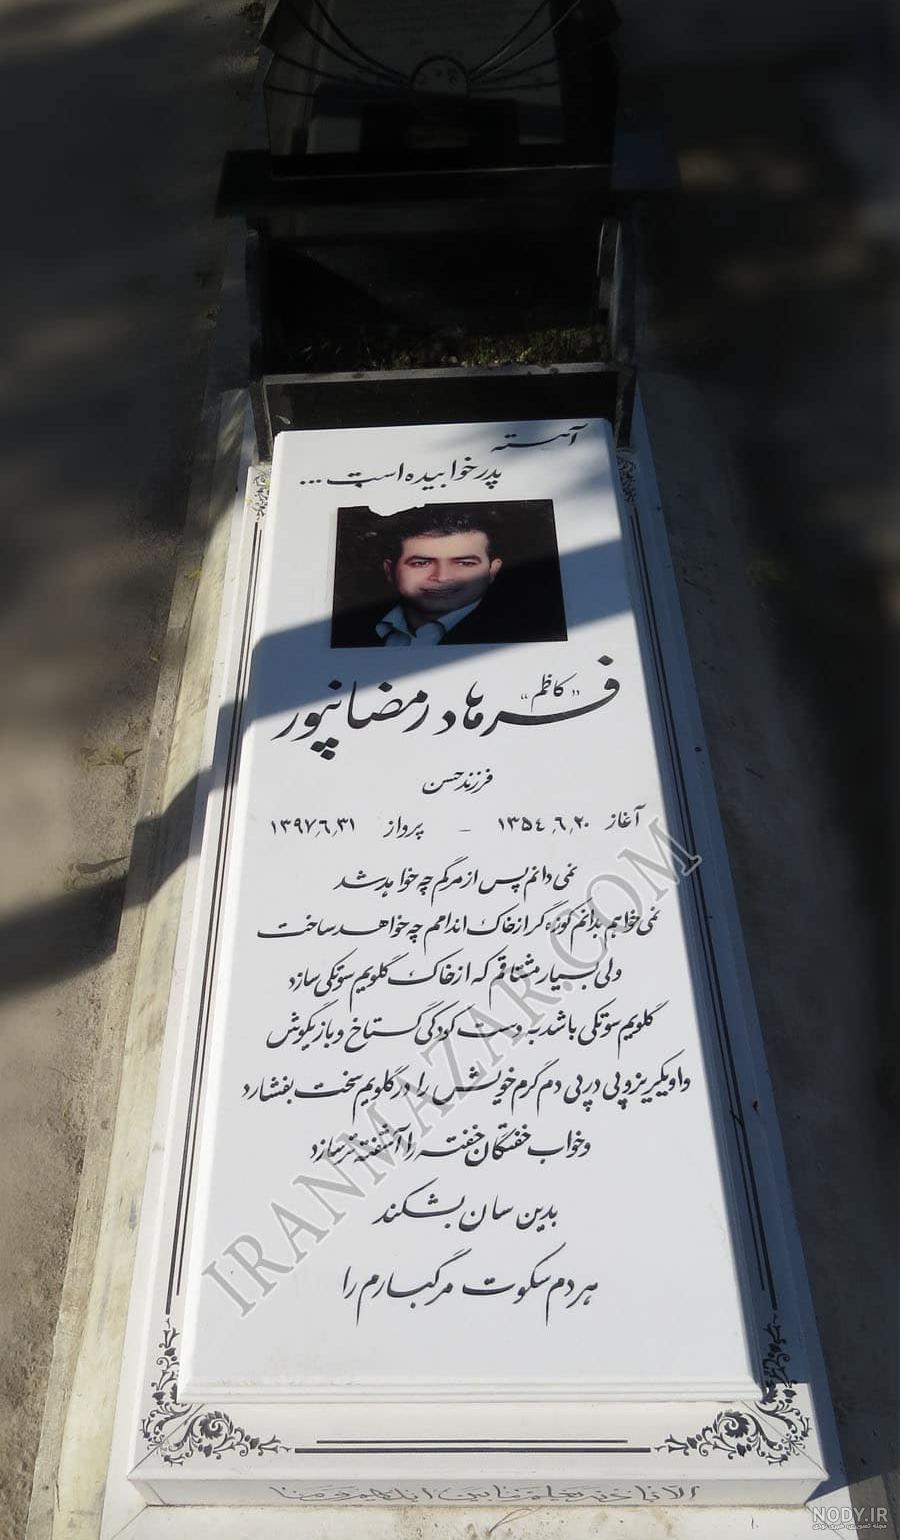 آهسته
پدر خوابیده است ...
"کاظم"
فرهاد رمضانپور
فرزند حسن
آغاز ۱۳۵٤,٦,۲۰ - پرواز ۱۳۹۷,٦,۳۱
نمی دانم پس از مرگم چه خواهد شد
نمی خواهم بدانم کوزه گر از خاک اندامم چه خواهد ساخت
ولی بسیار مشتاقم که از خاک گلویم سوتکی سازد
گلویم سوتکی باشد به دست کودکی گستاخ و بازیگوش
و او یکریز و پی در پی دم گرم خویش را در گلویم سخت بفشارد
و خواب خفتگان خفته را آشفته تر سازد
بدین سان بشکند
هر دم سکوت مرگبارم را
IRANMAZAR.COM
NODY.IR